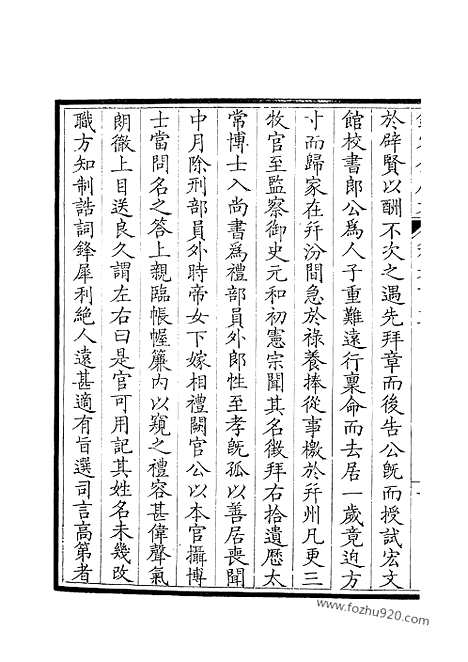 於辟賢以酬不次之遇先拜章而後告公既而授試宏文
館校書郎公爲人子重難遠行稟命而去居一歲竟迫方
寸而歸家在幷汾間急於祿養捧從事檄於幷州凡更三
牧官至監察御史元和初憲宗聞其名徵拜右拾遺歷太
常博士入尚書爲禮部員外郎性至孝既孤以善居喪聞
中月除刑部員外時帝女下嫁相禮闕官公以本官攝博
士當問名之答上親臨帳幄簾內以窺之禮容甚偉聲氣
朗徹上目送良久謂左右曰是官可用記其姓名未幾改
職方知制誥詞鋒犀利絕人遠甚適有旨選司言高第者
www.fozhu920.com